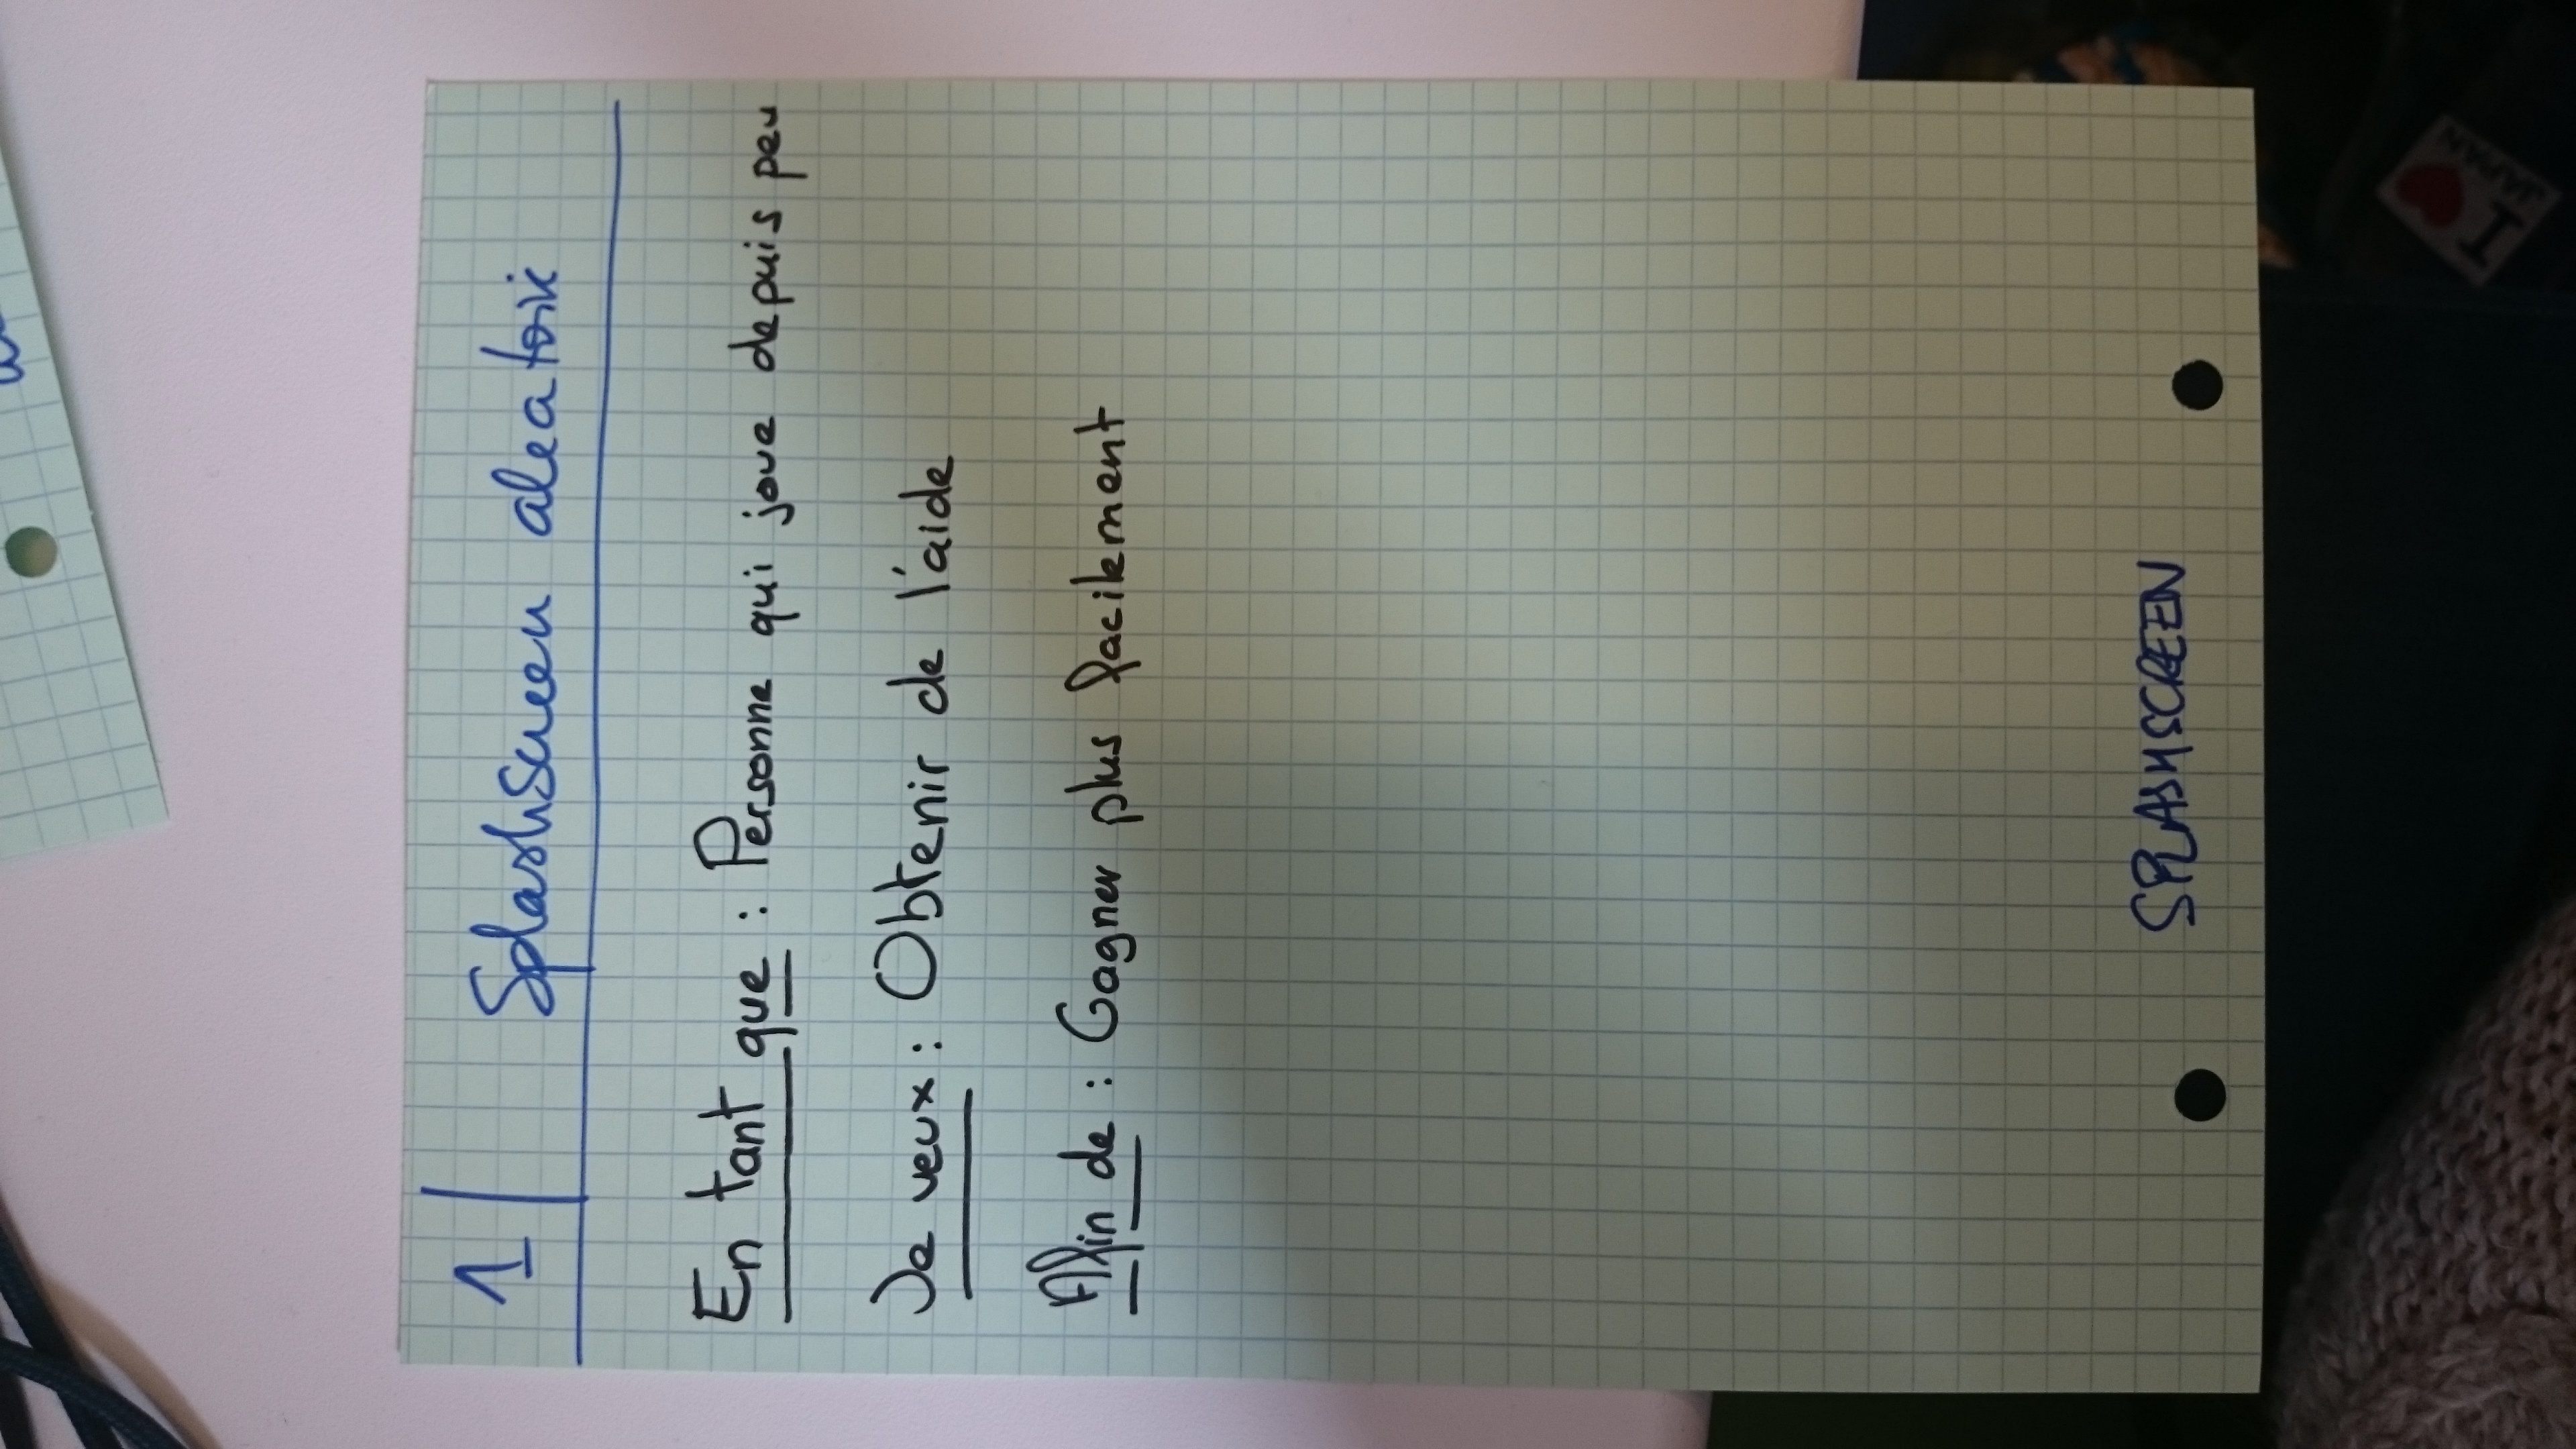 1 Splashscreen aleatoire
En tant que : Personne qui joue depuis peu
Je veux : Obtenir de l'aide
Afin de : Gagner plus facilement
SPLASHSCREEN
I ♥
JAPAN